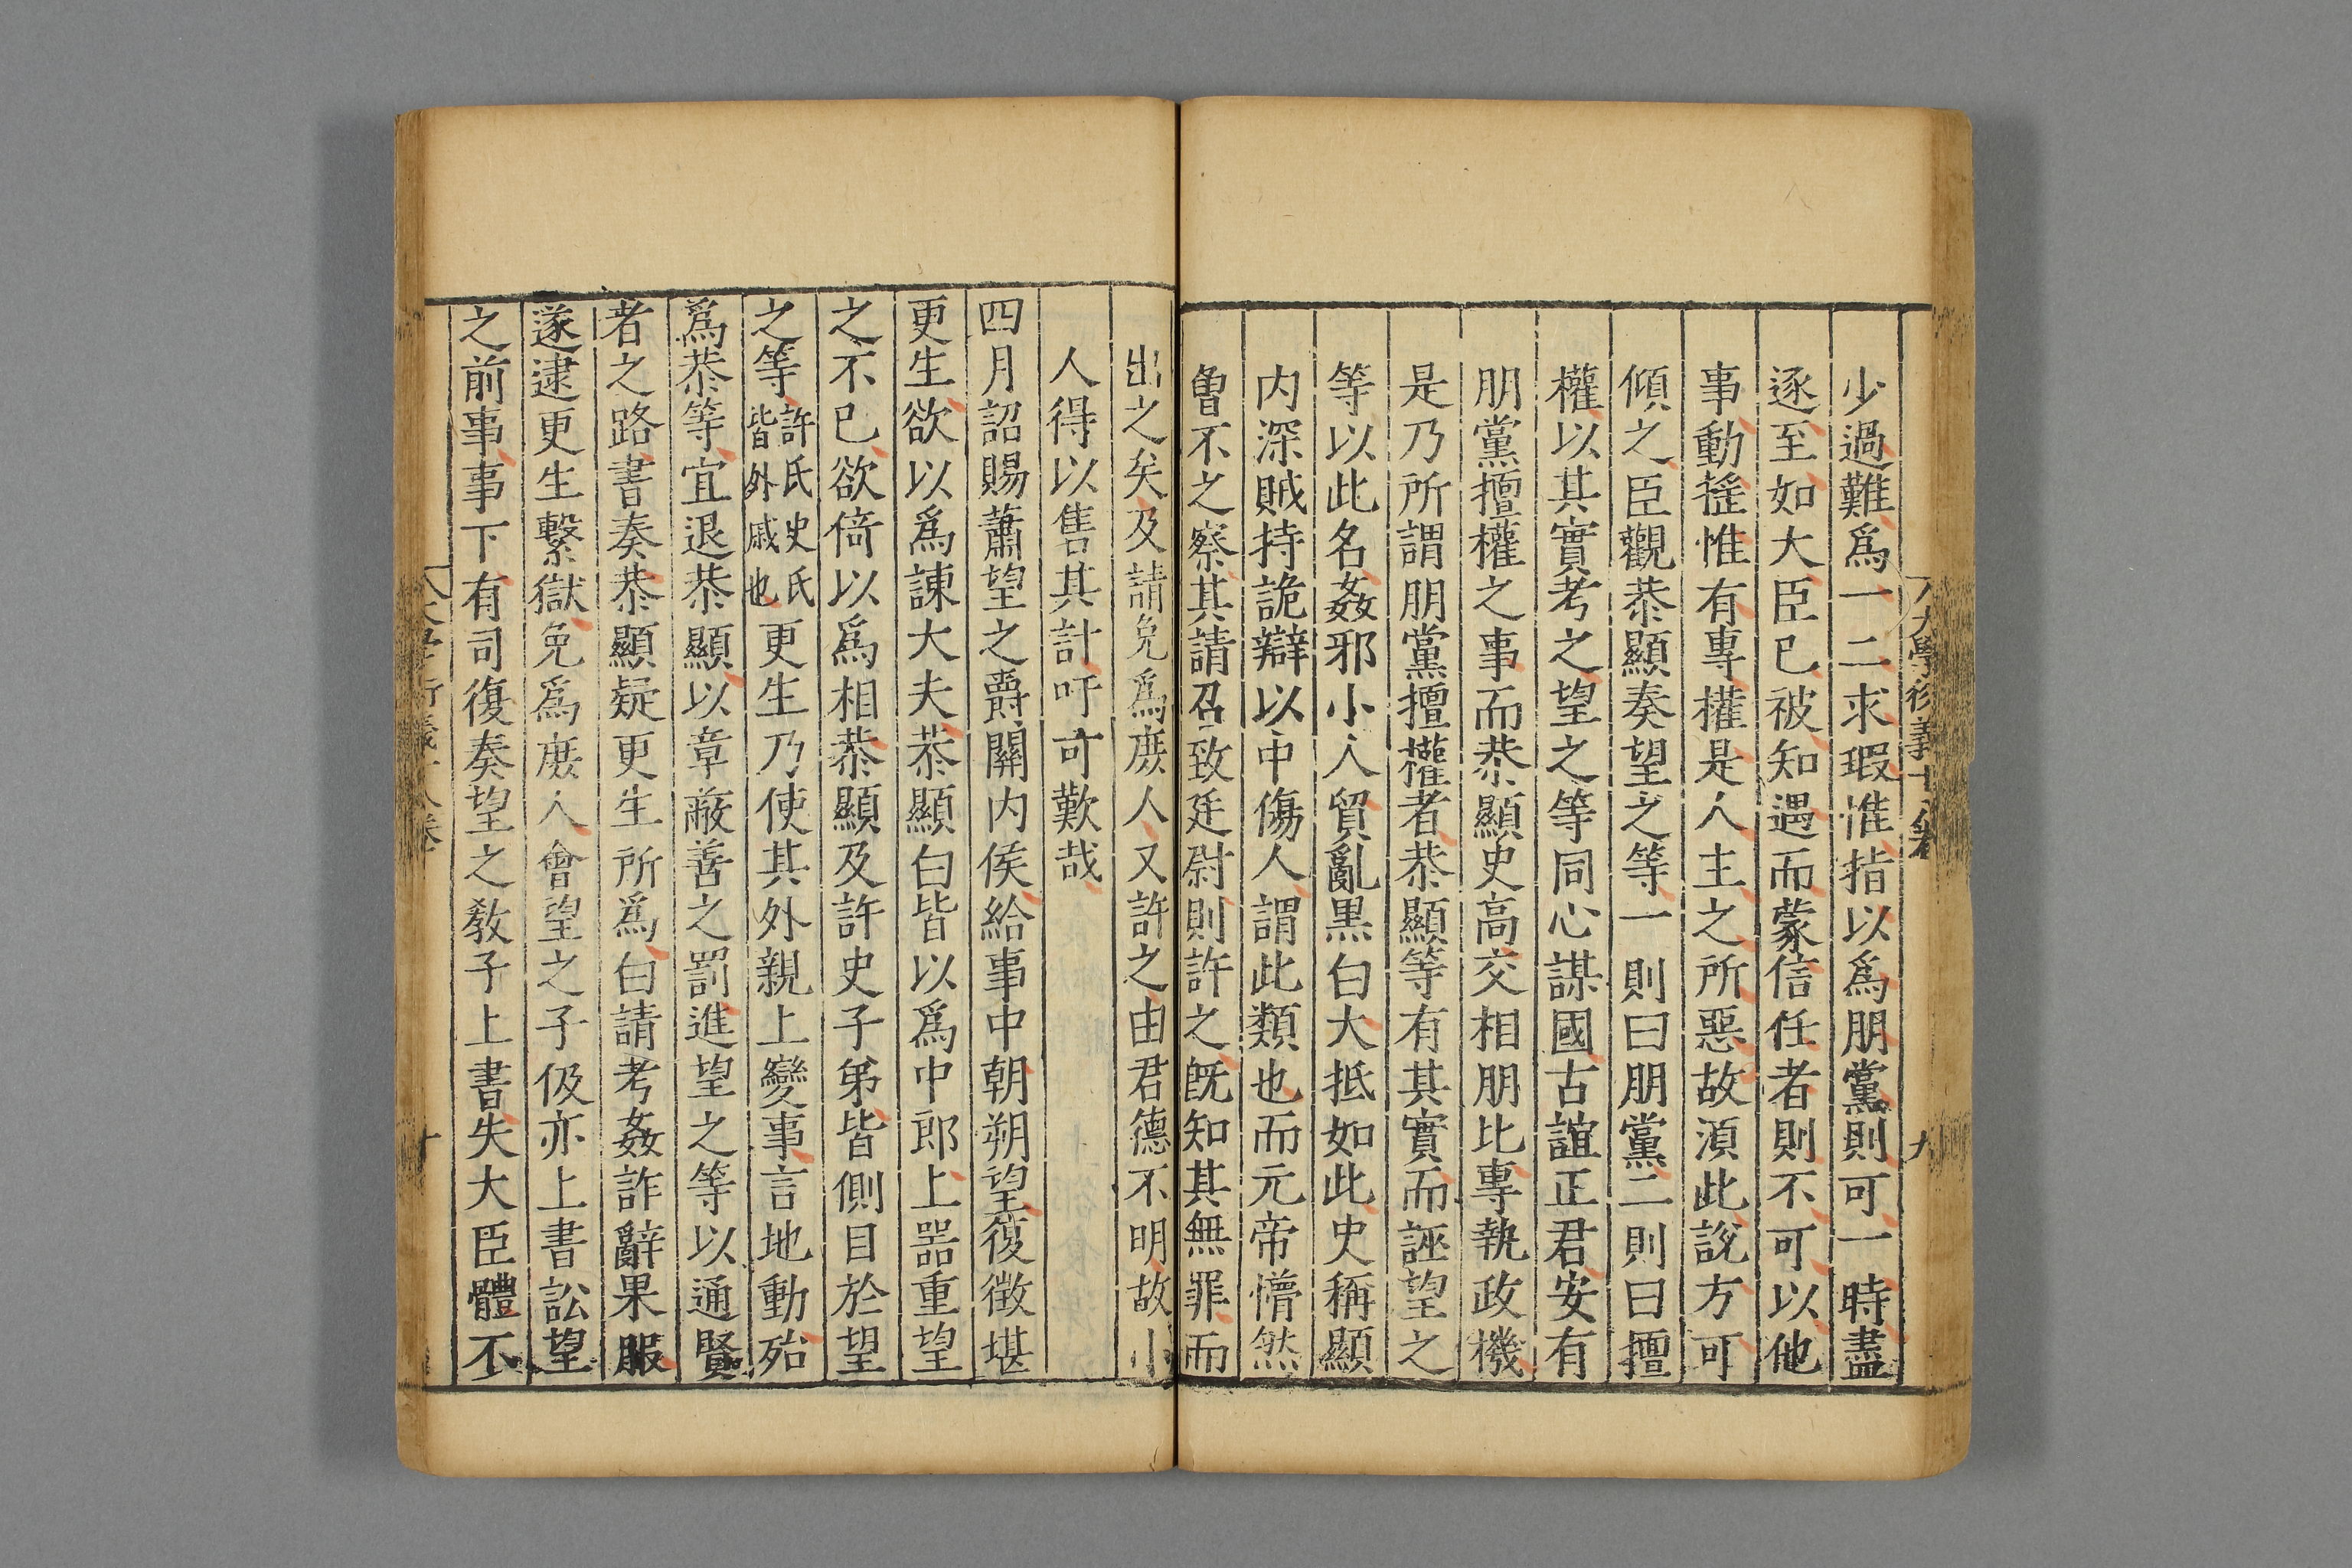 大學衍義十八卷 九
少過難爲一二求瑕惟指以爲朋黨則可一時盡
逐至如大臣已被知遇而蒙信任者則不可以他
事動揺惟有專權是人主之所惡故湏此說方可
傾之臣觀恭顯奏望之等一則曰朋黨二則曰擅
權以其實考之望之等同心謀國古誼正君安有
朋黨擅權之事而恭顯史高交相朋比專執政機
是乃所謂朋黨擅權者恭顯等有其實而誣望之
等以此名姦邪小人貿亂黒白大抵如此史稱顯
内深賊持詭辯以中傷人謂此類也而元帝懵然
魯不之察其請召致廷尉則許之旣知其無罪而
出之矣及請免爲庻人又許之由君德不明故小
人得以售其計吁可歎哉
四月詔賜蕭望之爵關内侯給事中朝朔望復徵堪
更生欲以爲諫大夫恭顯白皆以爲中郎上器重望
之不已欲倚以爲相恭顯及許史子弟皆側目於望
之等許氏史氏皆外戚也更生乃使其外親上變事言地動殆
爲恭等宜退恭顯以章蔽善之罰進望之等以通賢
者之路書奏恭顯疑更生所爲白請考姦詐辭果服
遂逮更生繫獄免爲庻人會望之子伋亦上書訟望
之前事事下有司復奏望之教子上書失大臣體不
大學衍義十八卷 十